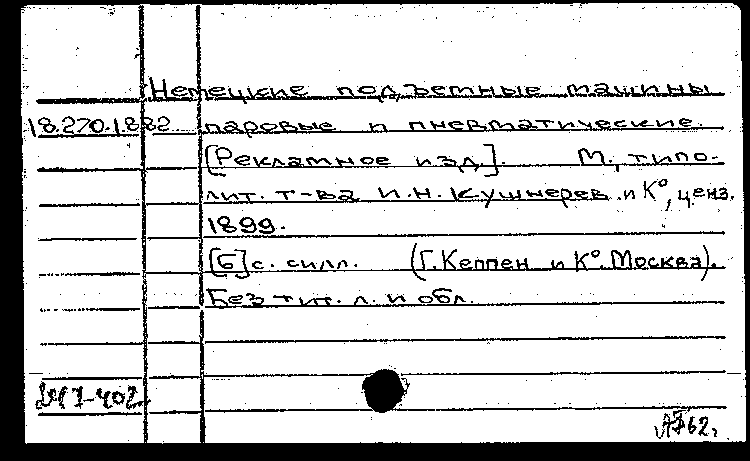 Немецкие подъемные машины
18.270.1.882 паровые и пневматические.
[Рекламное изд.]. М., типо-
лит. т-ва И.Н. Кушнерев и К°, ценз.
1899.
[6] с. с илл. (Г. Кеппен и К°. Москва).
Без тит. л. и обл.